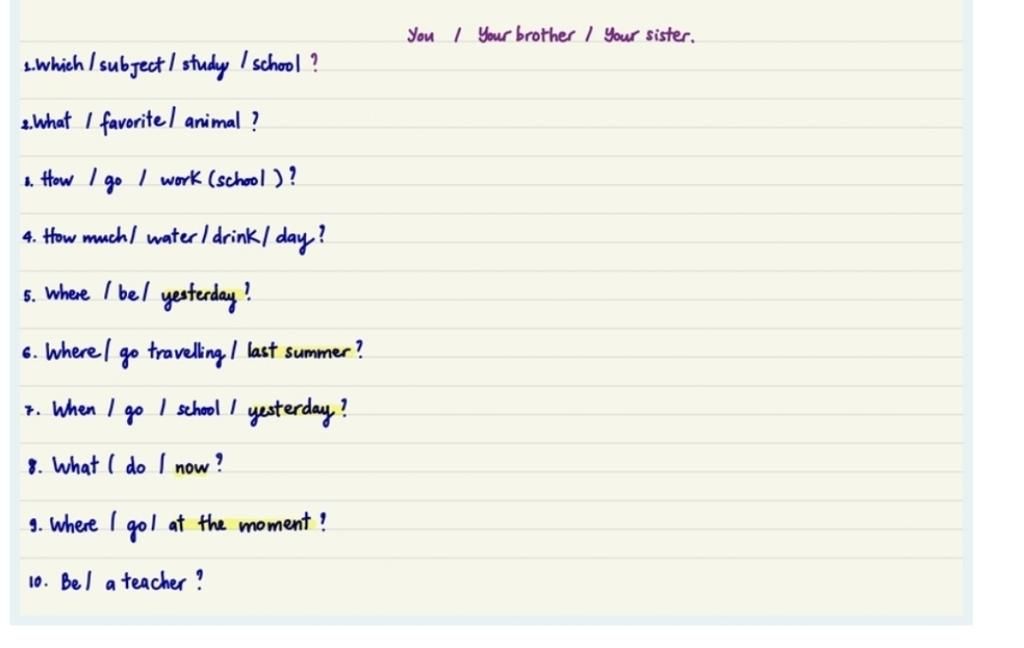 You / Your brother / Your sister.
1. Which / subject / study / school ?
2. What / favorite / animal ?
3. How / go / work (school) ?
4. How much / water / drink / day ?
5. Where / be / yesterday ?
6. Where / go travelling / last summer ?
7. When / go / school / yesterday ?
8. What / do / now ?
9. Where / go / at the moment ?
10. Be / a teacher ?